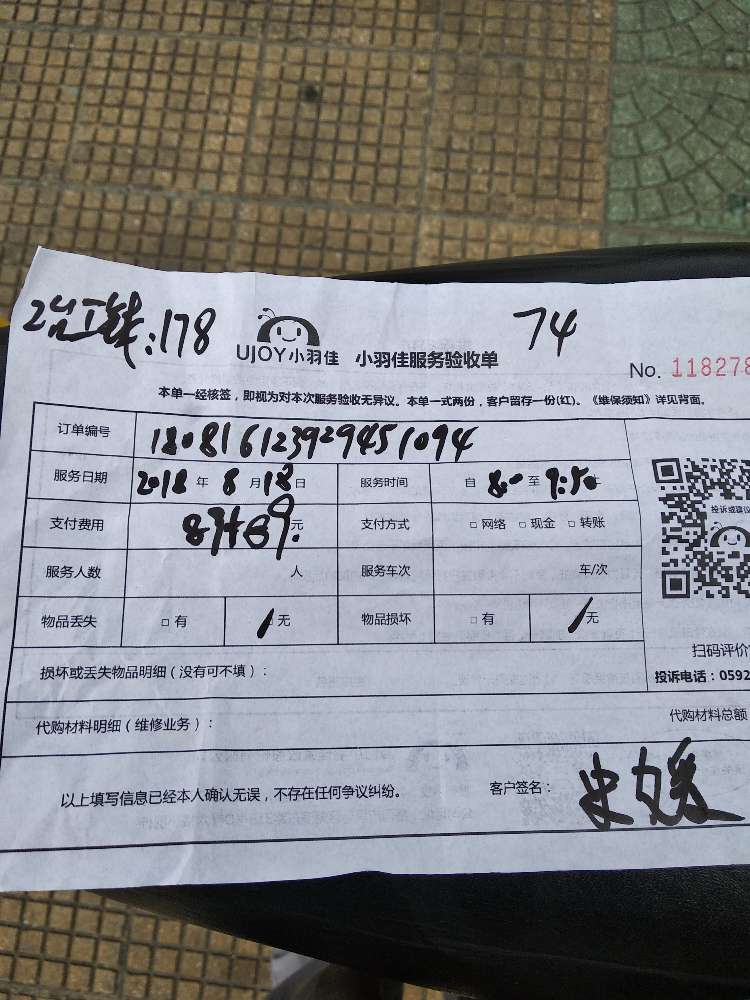 2台工钱:178
74
UJOY小羽佳 小羽佳服务验收单
No. 118278
本单一经核签，即视为对本次服务验收无异议。本单一式两份，客户留存一份(红)。《维保须知》详见背面。
订单编号 18081612392945 1094
服务日期 2018年8月18日 服务时间 自 8:00 至 9:50
支付费用 89+89元 支付方式 □ 网络 □ 现金 □ 转账
服务人数 人 服务车次 车/次
物品丢失 □ 有 □ 无 物品损坏 □ 有 无
投诉或建议
扫码评价
投诉电话：0592
损坏或丢失物品明细（没有可不填）：
代购材料明细（维修业务）： 代购材料总额
以上填写信息已经本人确认无误，不存在任何争议纠纷。 客户签名：史媛